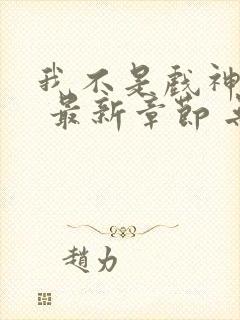 我不是戲神
最新章節
趙力